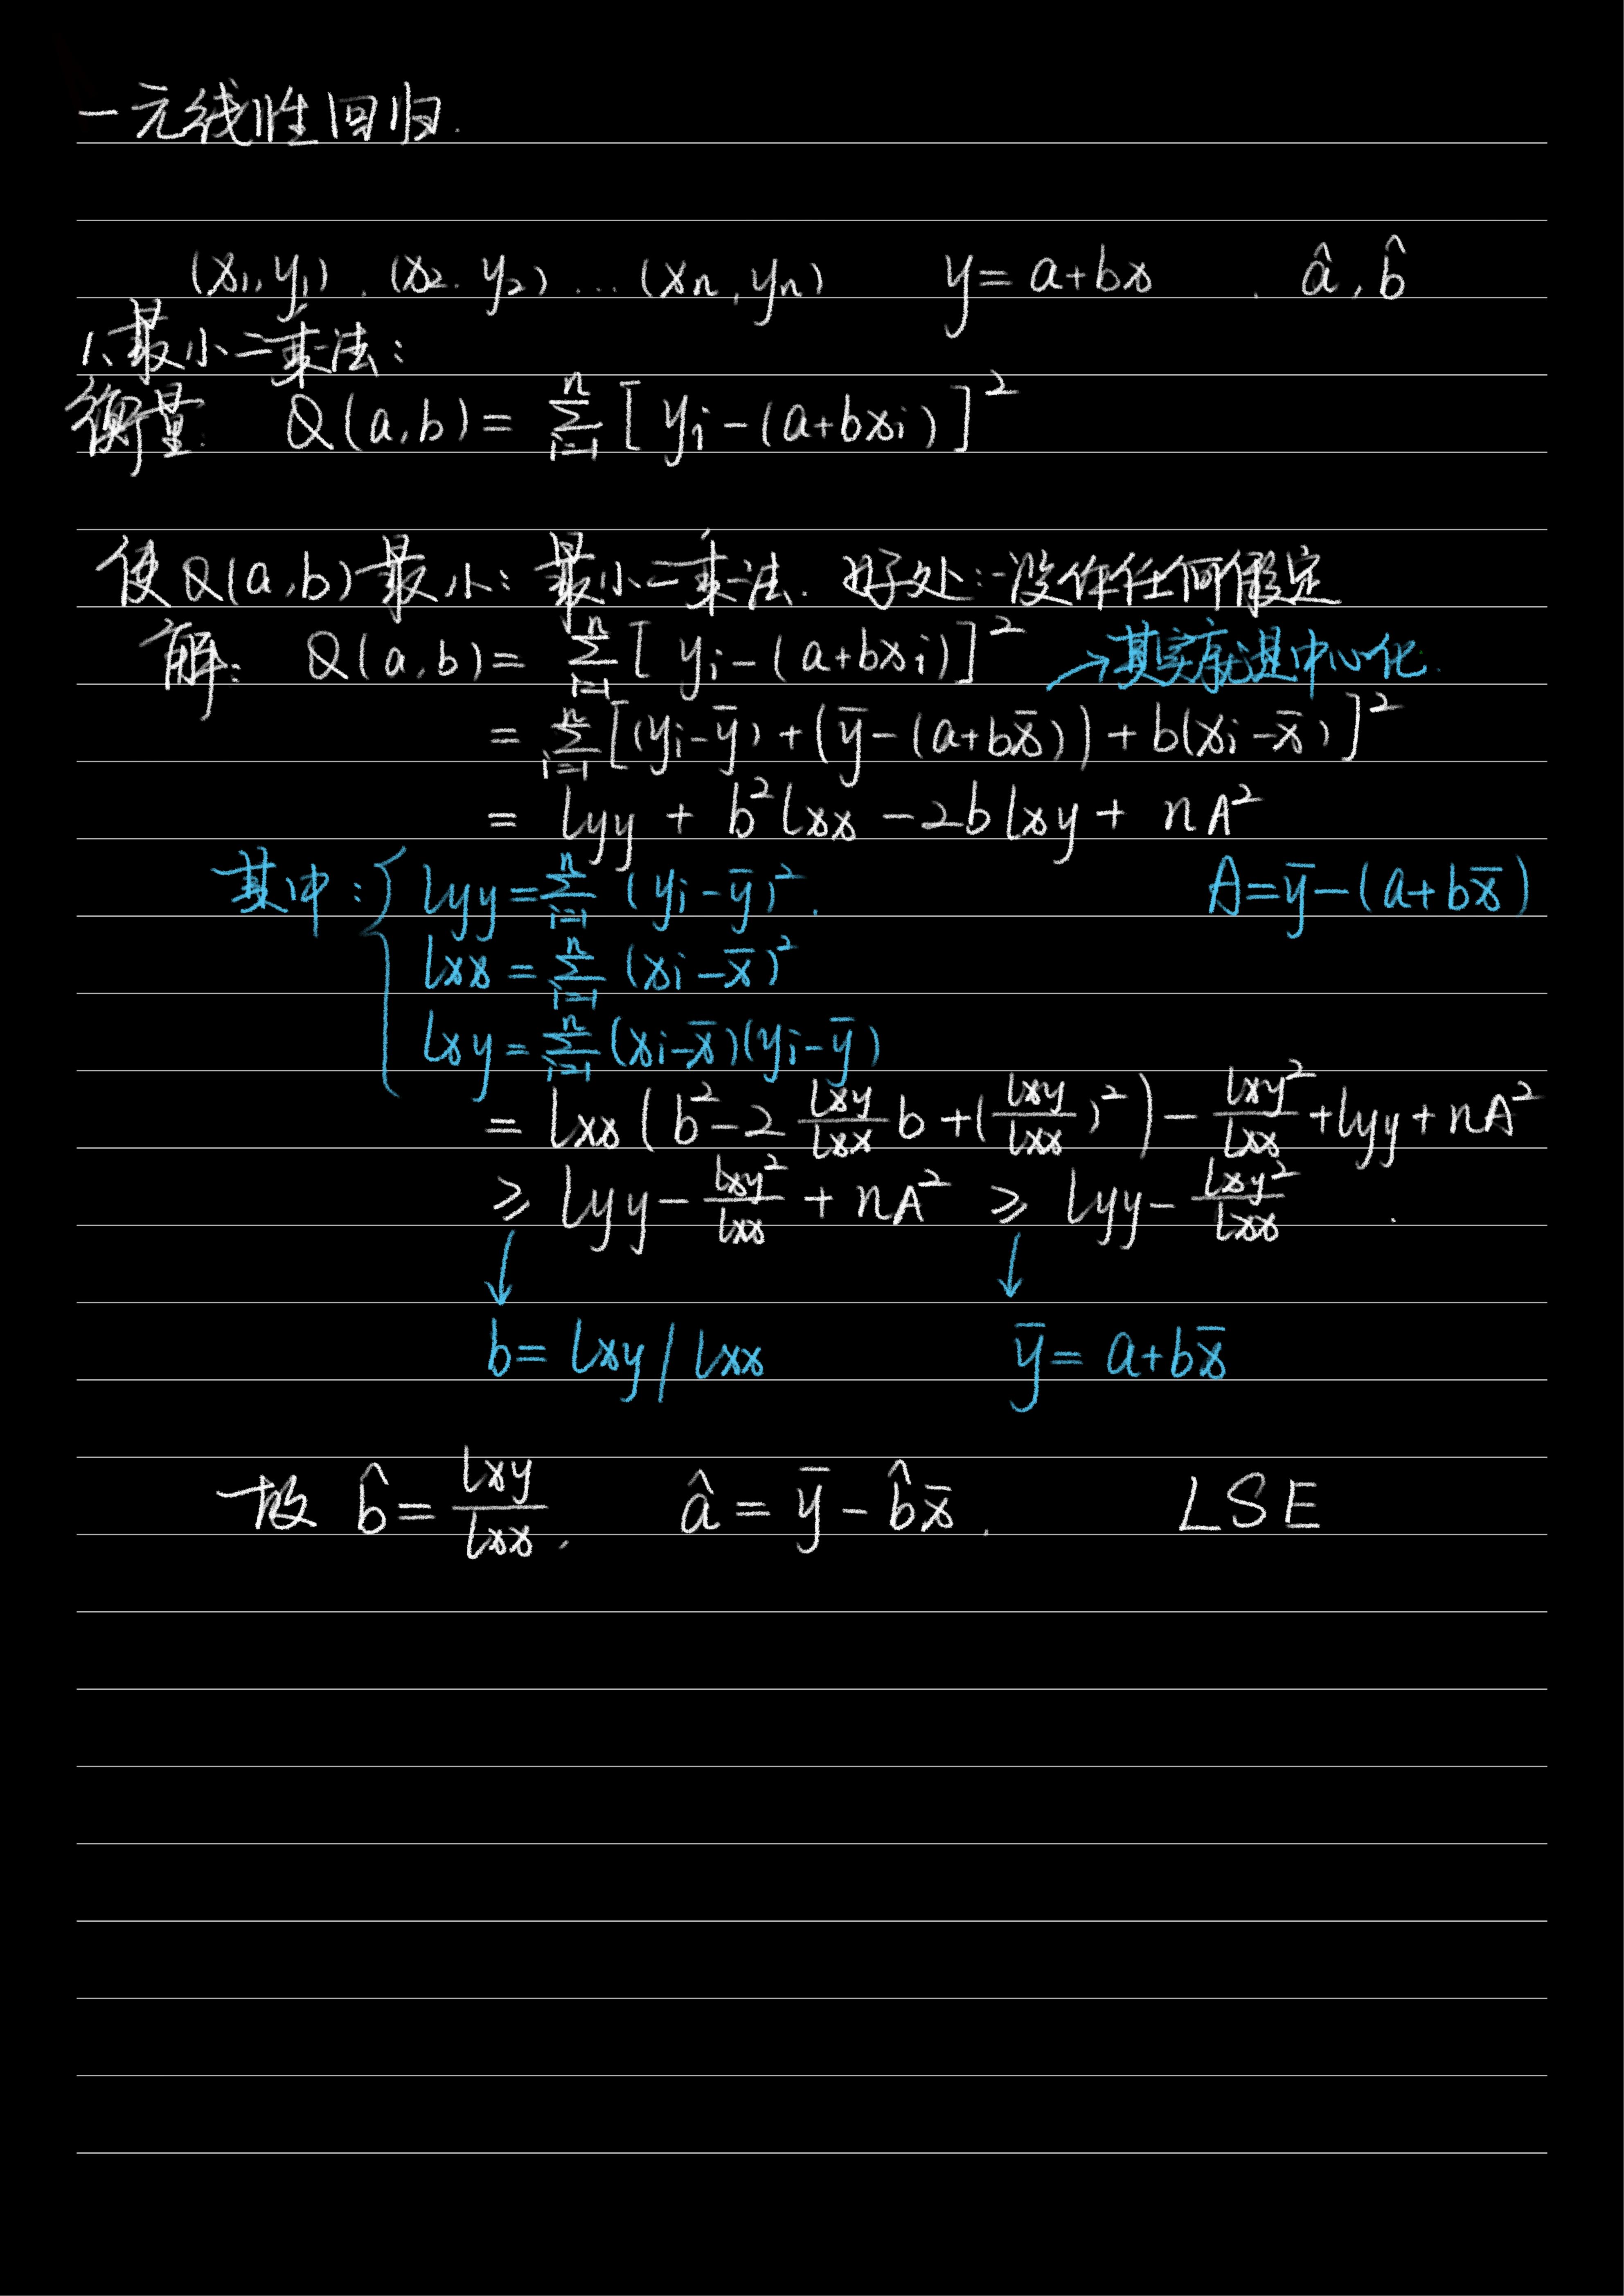 一元线性回归.
(x₁,y₁).(x₂.y₂)...(xₙ,yₙ) y=a+bx . â,b̂
1、最小二乘法:
衡量: Q(a,b)=∑ⁿᵢ₌₁[yᵢ-(a+bxᵢ)]²
使Q(a,b)最小: 最小二乘法. 好处:没作任何假定
解: Q(a,b)=∑ⁿᵢ₌₁[yᵢ-(a+bxᵢ)]² →其实就是中心化.
=∑ⁿᵢ₌₁[(yᵢ-ȳ)+(ȳ-(a+bx̄))+b(xᵢ-x̄)]²
= lyy + b²lxx -2blxy + nA²
其中:{ lyy=∑ⁿᵢ₌₁(yᵢ-ȳ)². A=ȳ-(a+bx̄)
lxx=∑ⁿᵢ₌₁(xᵢ-x̄)²
lxy=∑ⁿᵢ₌₁(xᵢ-x̄)(yᵢ-ȳ)
= lxx(b²-2 lxy/lxx b+(lxy/lxx)²)- lxy²/lxx +lyy+nA²
≥ lyy- lxy²/lxx + nA² ≥ lyy- lxy²/lxx .
↓ ↓
b= lxy/lxx ȳ= a+bx̄
故 b̂= lxy/lxx. â=ȳ-b̂x̄. LSE